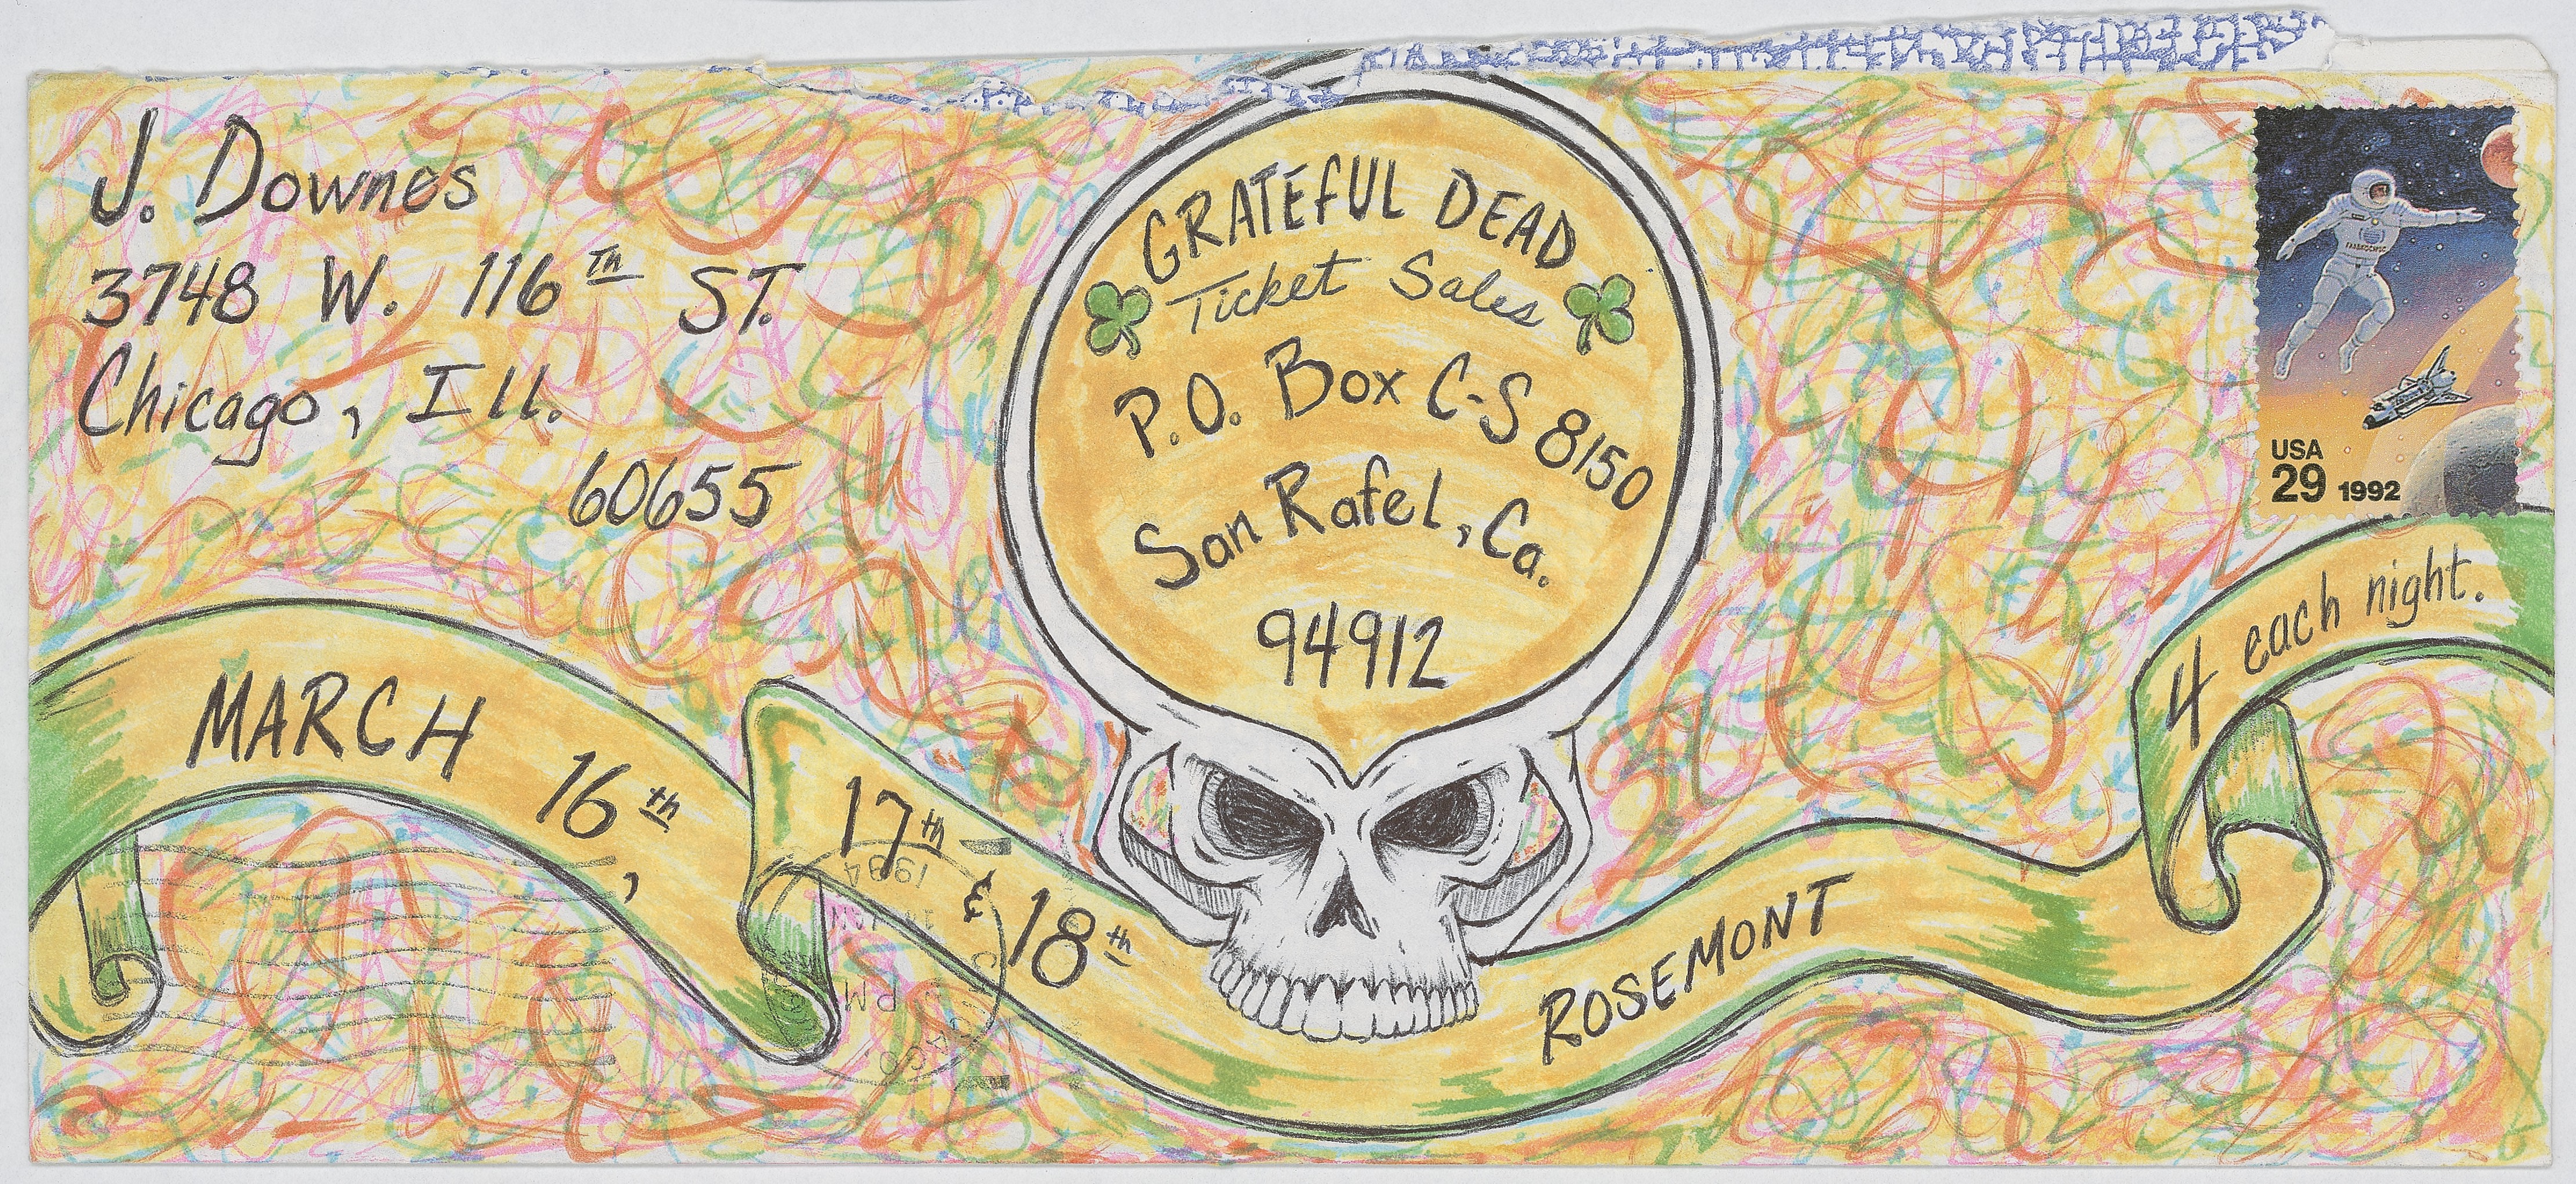 J. Downes
3748 W. 116th ST.
Chicago, Ill.
60655
GRATEFUL DEAD
Ticket Sales
P.O. Box C-S 8150
San Rafel, Ca.
94912
USA
29 1992
4 each night.
MARCH 16th, 17th & 18th
ROSEMONT
1994
JAN
PM
CHICAGO